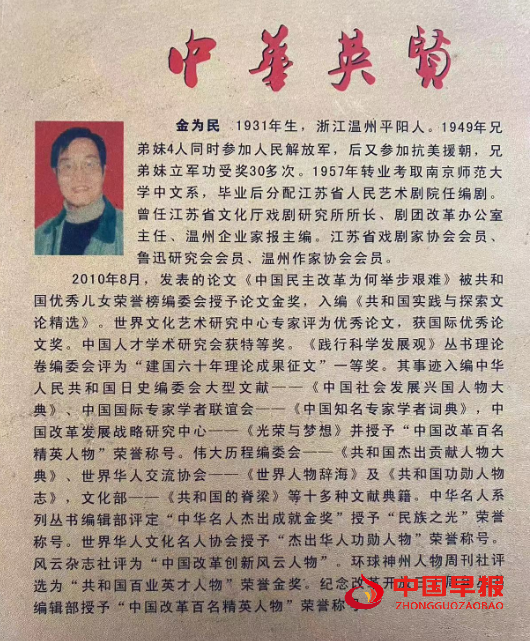 中华英贤
金为民 1931年生，浙江温州平阳人。1949年兄
弟妹4人同时参加人民解放军，后又参加抗美援朝，兄
弟妹立军功受奖30多次。1957年转业考取南京师范大
学中文系，毕业后分配江苏省人民艺术剧院任编剧。
曾任江苏省文化厅戏剧研究所所长、剧团改革办公室
主任、温州企业家报主编。江苏省戏剧家协会会员、
鲁迅研究会会员、温州作家协会会员。
2010年8月，发表的论文《中国民主改革为何举步艰难》被共和
国优秀儿女荣誉榜编委会授予论文金奖，入编《共和国实践与探索文
论精选》。世界文化艺术研究中心专家评为优秀论文，获国际优秀论
文奖。中国人才学术研究会获特等奖。《践行科学发展观》丛书理论
卷编委会评为“建国六十年理论成果征文”一等奖。其事迹入编中华
人民共和国日史编委会大型文献——《中国社会发展兴国人物大
典》、中国国际专家学者联谊会——《中国知名专家学者词典》，中
国改革发展战略研究中心——《光荣与梦想》并授予“中国改革百名
精英人物”荣誉称号。伟大历程编委会——《中国共杰出贡献人物大
典》、世界华人交流协会——《世界人物辞海》及《共和国功勋人物
志》，文化部——《共和国的脊梁》等十多种文献典籍。中华名人系
列丛书编辑部评定“中华名人杰出成就金奖”授予“民族之光”荣誉
称号。世界华人文化名人协会授予“杰出华人功勋人物”荣誉称号。
风云杂志社评为“中国改革创新风云人物”。环球神州人物周刊社评
选为“共和国百业英才人物”荣誉金奖。纪念改革开放
编辑部授予“中国改革百名精英人物”荣誉称
中国早报
ZHONGGUOZAOBAO